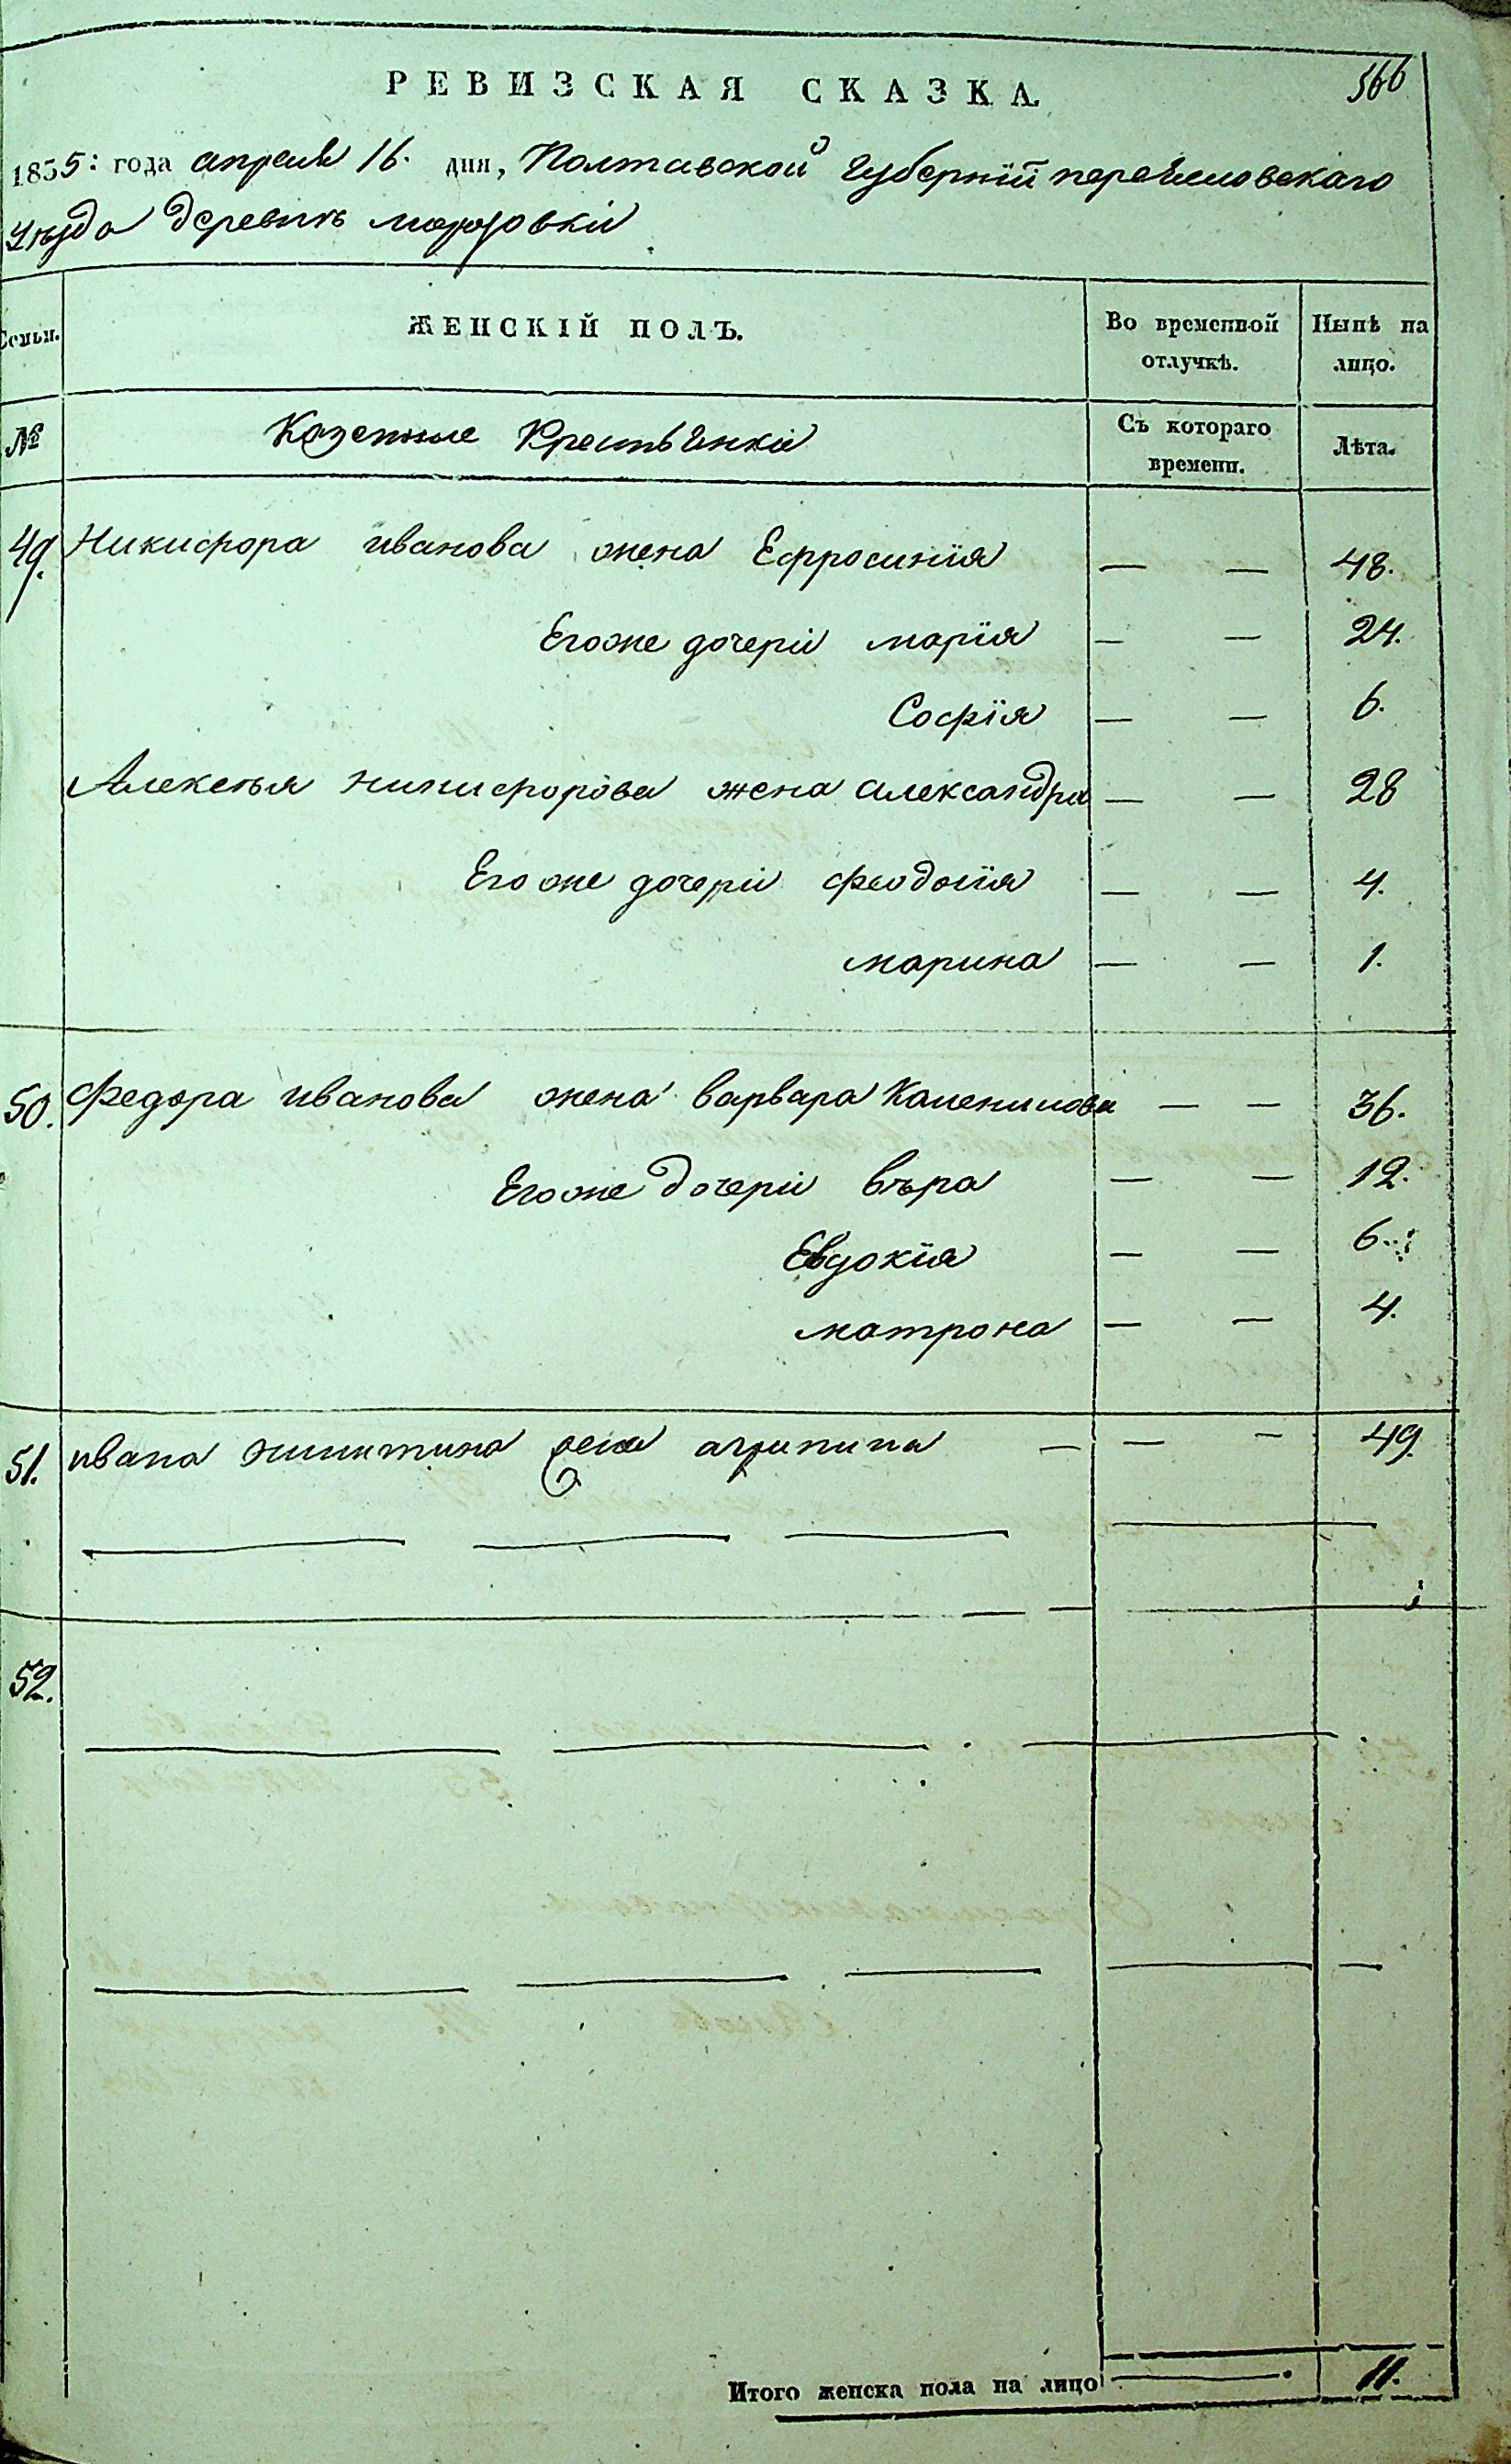 366
РЕВИЗСКАЯ СКАЗКА
1855: года апреля 16. дня, Полтавской Губернїй переяславскаго
уѣзда деревнѣ
Семьи.
ЖЕНСКІЙ ПОЛЪ.
Во временной отлучкѣ.
Нынѣ на лицо.
№
Казенные Крестьянки
Съ котораго времени.
Лѣта.
49. Никифора иванова жена Ефросинїя — — 48.
Егоже дочери марїя — — 24.
Софїя — — 6.
Алексѣя никифорова жена александра — — 28
Егоже дочери феодосїя — — 4.
марина — — 1.
50. Федора иванова жена варвара — — 36.
Егоже дочери вѣра — — 12.
Евдокїя — — 6.
матрона — — 4.
51. ивана никитина жена агрипина — — — 49.
52.
Итого женска пола на лицо — 11.